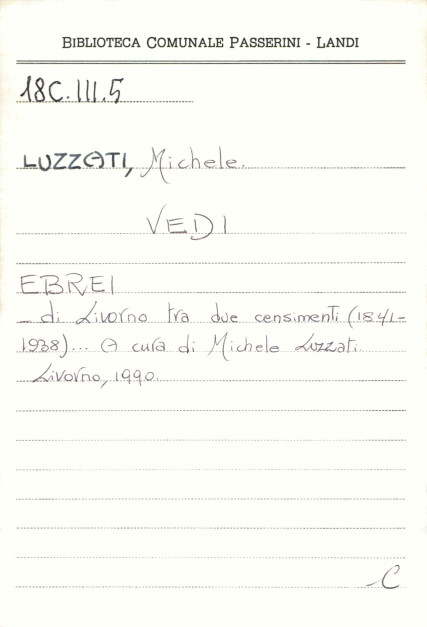 BIBLIOTECA COMUNALE PASSERINI - LANDI
18C.III.5
LUZZATI, Michele.
VEDI
EBREI
_ di Livorno tra due censimenti (1841-
1938)... A cura di Michele Luzzati.
Livorno, 1990.
C